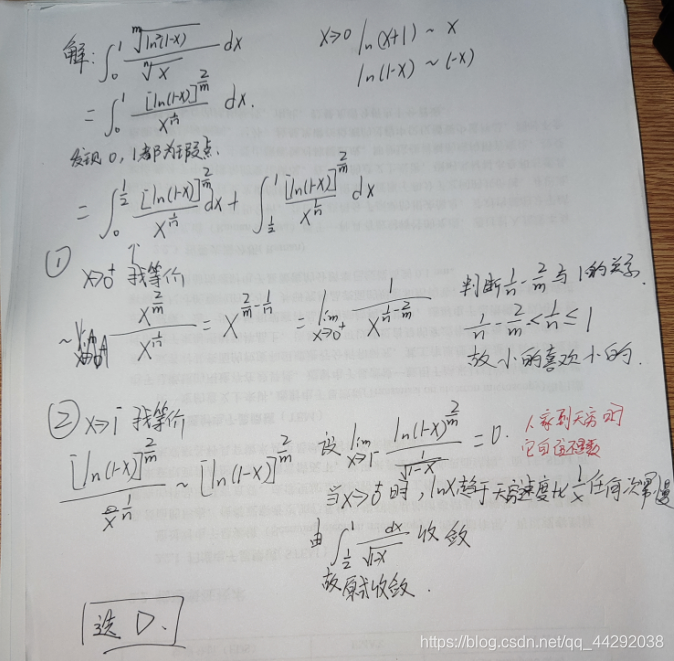 解: ∫₀¹ ᵐ√(ln²(1-x)) / ⁿ√x dx
x→0 ln(x+1) ~ x
ln(1-x) ~ (-x)
= ∫₀¹ [ln(1-x)]^(2/m) / x^(1/n) dx.
发现 0, 1都为瑕点.
= ∫₀^(1/2) [ln(1-x)]^(2/m) / x^(1/n) dx + ∫_(1/2)^1 [ln(1-x)]^(2/m) / x^(1/n) dx
① x→0⁺ 找等价
~ x^(2/m) / x^(1/n) = x^(2/m - 1/n) = lim_(x→0⁺) 1 / x^(1/n - 2/m)
判断 1/n - 2/m 与 1 的关系.
1/n - 2/m < 1/n ≤ 1
故小的喜欢小的.
② x→1⁻ 找等价
[ln(1-x)]^(2/m) / x^(1/n) ~ [ln(1-x)]^(2/m)
设 lim_(x→1⁻) ln(1-x)^(2/m) / (1/√(1-x)) = 0.
当 x→0⁺ 时, lnx 趋于无穷速度比 1/x 任何次幂慢
由 ∫_(1/2)^1 dx/√(1-x) 收敛
故原式收敛.
选 D.
https://blog.csdn.net/qq_44292038